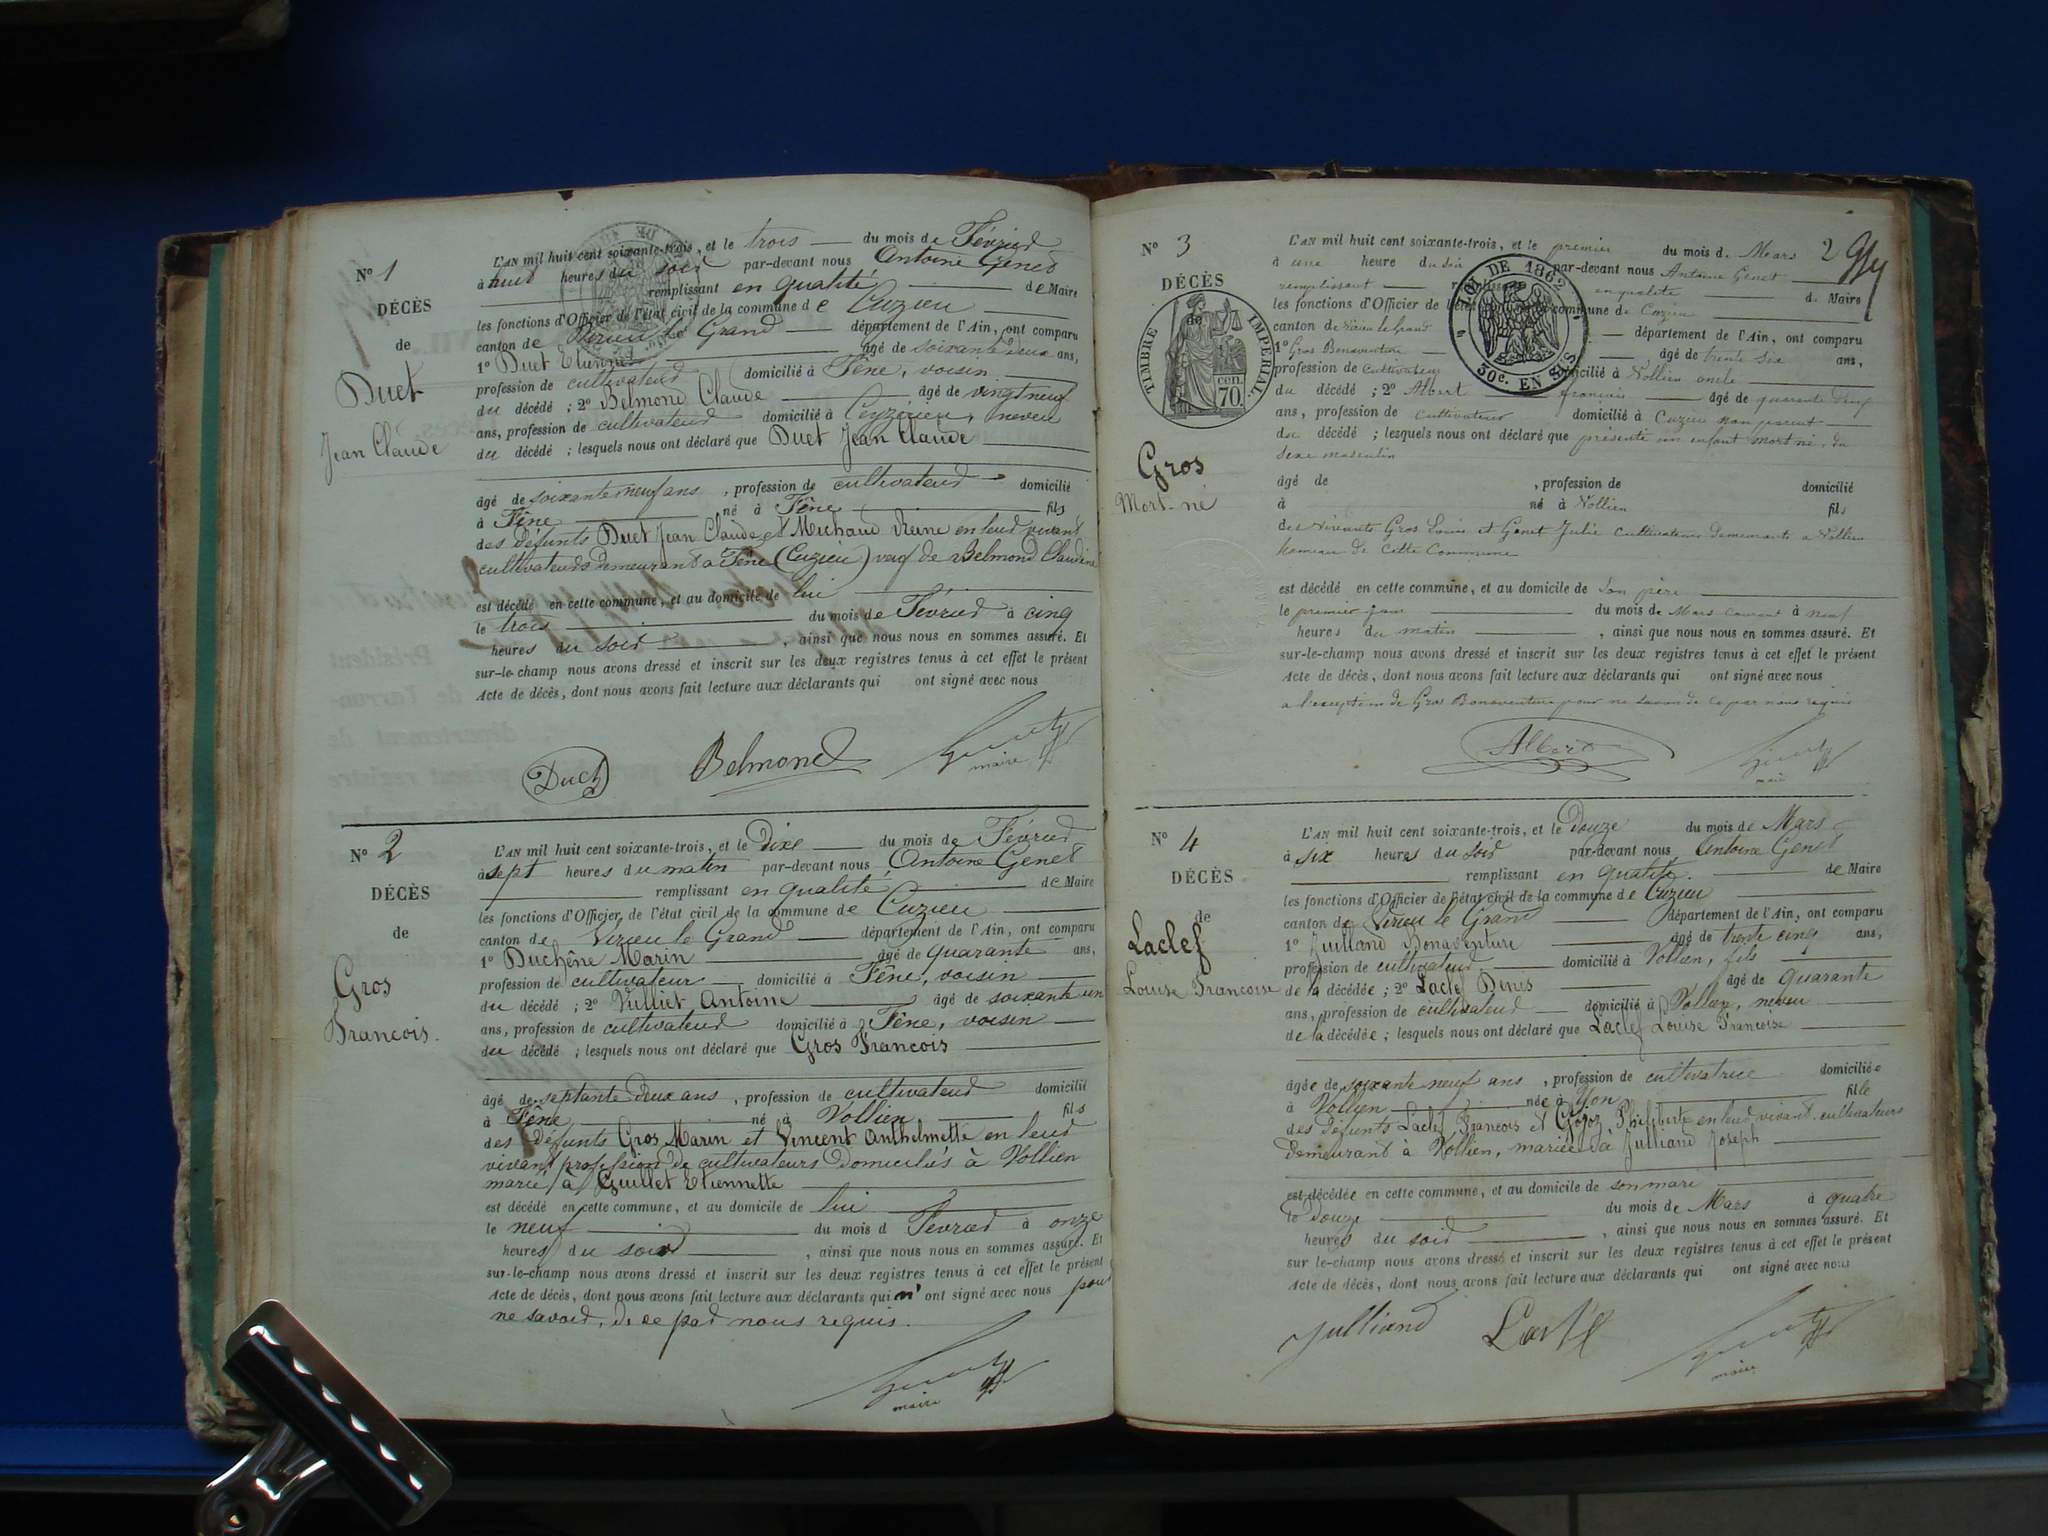 N° 1
DÉCÈS
de
Duet
Jean Claude
L'AN mil huit cent soixante-trois, et le trois du mois de Février
à huit heures du soir par-devant nous Antoine Genet
remplissant en qualité de Maire
les fonctions d'Officier de l'état civil de la commune de Cuzieu
canton de Virieu le Grand département de l'Ain, ont comparu
1° Duet Etienne âgé de soixante deux ans,
profession de cultivateur domicilié à Fêne, voisin
du décédé ; 2° Belmond Claude âgé de vingt neuf
ans, profession de cultivateur domicilié à Ceyzérieu, neveu
du décédé ; lesquels nous ont déclaré que Duet Jean Claude
âgé de soixante neuf ans, profession de cultivateur domicilié
à Fêne né à Fêne fils
des défunts Duet Jean Claude et Michaud Reine en leur vivant
cultivateurs demeurant à Fêne (Cuzieu) veuf de Belmond Claudine
est décédé en cette commune, et au domicile de lui
le trois du mois de Février à cinq
heures du soir, ainsi que nous nous en sommes assuré. Et
sur-le-champ nous avons dressé et inscrit sur les deux registres tenus à cet effet le présent
Acte de décès, dont nous avons fait lecture aux déclarants qui ont signé avec nous
Duch Belmond
maire
N° 2
DÉCÈS
de
Gros
Francois.
L'AN mil huit cent soixante-trois, et le dixe du mois de Février
à sept heures du matin par-devant nous Antoine Genet
remplissant en qualité de Maire
les fonctions d'Officier de l'état civil de la commune de Cuzieu
canton de Virieu le Grand département de l'Ain, ont comparu
1° Duchêne Marin âgé de quarante ans,
profession de cultivateur domicilié à Fêne, voisin
du décédé ; 2° Vulliet Antoine âgé de soixante un
ans, profession de cultivateur domicilié à Fêne, voisin
du décédé ; lesquels nous ont déclaré que Gros Francois
âgé de septante deux ans, profession de cultivateur domicilié
à Fêne né à Vollien fils
des défunts Gros Marin et Vincent Anthelmette en leur
vivant profession de cultivateurs domiciliés à Vollien
marié à Guillet Etiennette
est décédé en cette commune, et au domicile de lui
le neuf du mois d Février à onze
heures du soir, ainsi que nous nous en sommes assuré. Et
sur-le-champ nous avons dressé et inscrit sur les deux registres tenus à cet effet le présent
Acte de décès, dont nous avons fait lecture aux déclarants qui n'ont signé avec nous pour
ne savoir, de ce par nous requis.
maire
N° 3
DÉCÈS
de
TIMBRE IMPERIAL
70 cen.
Gros
Mort-né
LOI DE 1862
50c. EN SUS
2
L'AN mil huit cent soixante-trois, et le premier du mois d. Mars
à une heure du soir par-devant nous Antoine Genet
remplissant en qualité d. Maire
les fonctions d'Officier de l'état civil de la commune de Cuzieu
canton de Virieu le Grand département de l'Ain, ont comparu
1° Gros Bonaventure âgé de trente six ans,
profession de Cultivateur domicilié à Vollien oncle
du décédé ; 2° Albert francois âgé de quarante deux
ans, profession de Cultivateur domicilié à Cuzieu non parent
du décédé ; lesquels nous ont déclaré que présenté un enfant mort né, du
sexe masculin
âgé de , profession de domicilié
à né à Vollien fils
des vivants Gros Louis et Genet Julie Cultivateurs demeurants a Vollien
hameau de Cette Commune
est décédé en cette commune, et au domicile de son père
le premier jour du mois de Mars courant à neuf
heures du matin, ainsi que nous nous en sommes assuré. Et
sur-le-champ nous avons dressé et inscrit sur les deux registres tenus à cet effet le présent
Acte de décès, dont nous avons fait lecture aux déclarants qui ont signé avec nous
a l'exception de Gros Bonaventure pour ne savoir de ce par nous requis
Albert
maire
N° 4
DÉCÈS
de
Laclef
Louise Francoise
L'AN mil huit cent soixante-trois, et le Douze du mois de Mars
à six heures du soir par-devant nous Antoine Genet
remplissant en qualité. de Maire
les fonctions d'Officier de l'état civil de la commune de Cuzieu
canton de Virieu le Grand département de l'Ain, ont comparu
1° Julliand Bonaventure âgé de trente cinq ans,
profession de cultivateur domicilié à Vollien, fils
de la décédée ; 2° Laclef Dinis âgé de quarante
ans, profession de cultivateur domicilié à Vollien, neveu
de la décédée ; lesquels nous ont déclaré que Laclef Louise Francoise
âgée de soixante neuf ans, profession de cultivatrice domiciliée
à Vollien née à Yon fille
des défunts Laclef Francois et Gojoz Philiberte en leur vivant cultivateurs
demeurant à Vollien, mariée à Julliand Joseph
est décédée en cette commune, et au domicile de son mari
le Douze du mois de Mars à quatre
heures du soir, ainsi que nous nous en sommes assuré. Et
sur-le-champ nous avons dressé et inscrit sur les deux registres tenus à cet effet le présent
Acte de décès, dont nous avons fait lecture aux déclarants qui ont signé avec nous
Julliand
maire